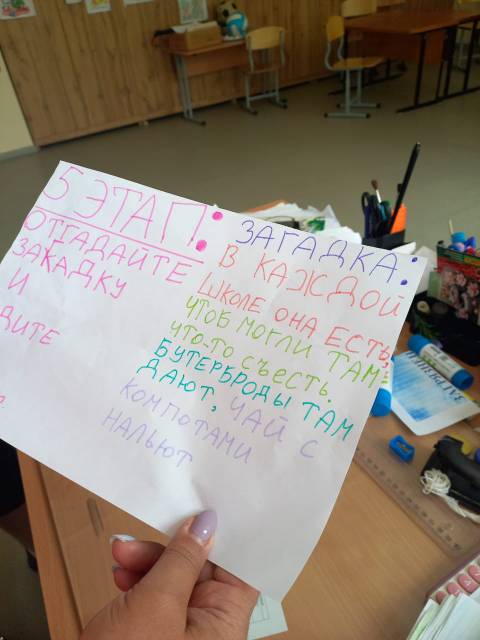 5 ЭТАП:
ОТГАДАЙТЕ
ЗАКАДКУ
И
ДИТЕ
ЗАГАДКА:
В КАЖДОЙ
ШКОЛЕ ОНА ЕСТЬ,
ЧТОБ МОГЛИ ТАМ
ЧТО-ТО СЪЕСТЬ.
БУТЕРБРОДЫ ТАМ
ДАЮТ, ЧАЙ С
КОМПОТАМИ
НАЛЬЮТ